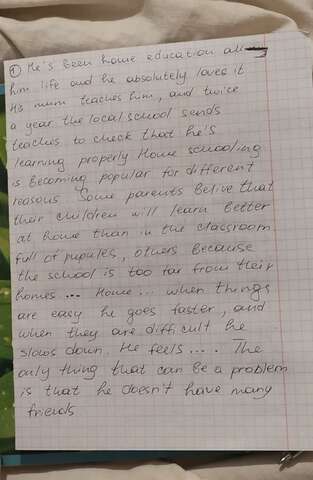 ① He's been home education all
him life and he absolutely loves it
His mum teaches him, and twice
a year the local school sends
teaches to check that he's
learning properly Home schooling
is becoming popular for different
reasons Some parents belive that
their children will learn better
at home than in the classroom
full of pupules, others because
the school is too far from their
homes ... Home ... when things
are easy he goes faster, and
when they are difficult he
slows down. He feels .... The
only thing that can be a problem
is that he doesn't have many
friends